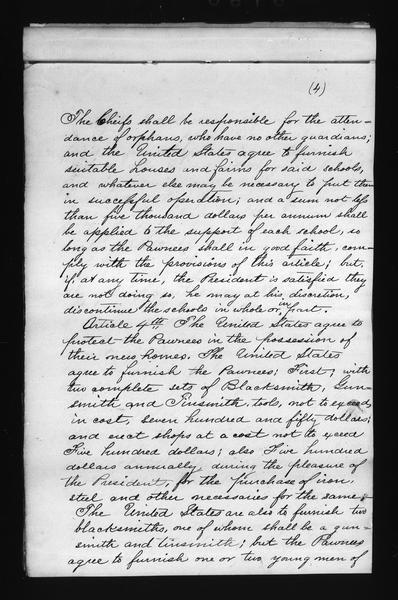 (4)
The Cheifs shall be responsible for the atten-
dance of orphans, who have no other guardians;
and the United States agree to furnish
suitable houses and farms for said schools,
and whatever else may be necessary to put them
in successful operation; and a sum not less
than five thousand dollars per annum shall
be applied to the support of each school, so
long as the Pawnees shall in good faith, com-
ply with the provisions of this article; but,
if, at any time, the President is satisfied they
are not doing so, he may at his discretion,
discontinue the schools in whole or in part.
Article 4th The United States agree to
protect the Pawnees in the possession of
their new homes. The United States
agree to furnish the Pawnees; First, with
two complete sets of Blacksmith, Gun-
smith and Tinsmith, tools, not to exceed,
in cost, Seven hundred and fifty dollars;
and erect shops at a cost not to exceed
Five hundred dollars; also Five hundred
dollars annually during the pleasure of
the President, for the purchase of iron,
steel and other necessaries for the same.
The United States are also to furnish two
blacksmiths, one of whom shall be a gun-
smith and tinsmith; but the Pawnees
agree to furnish one or two young men of